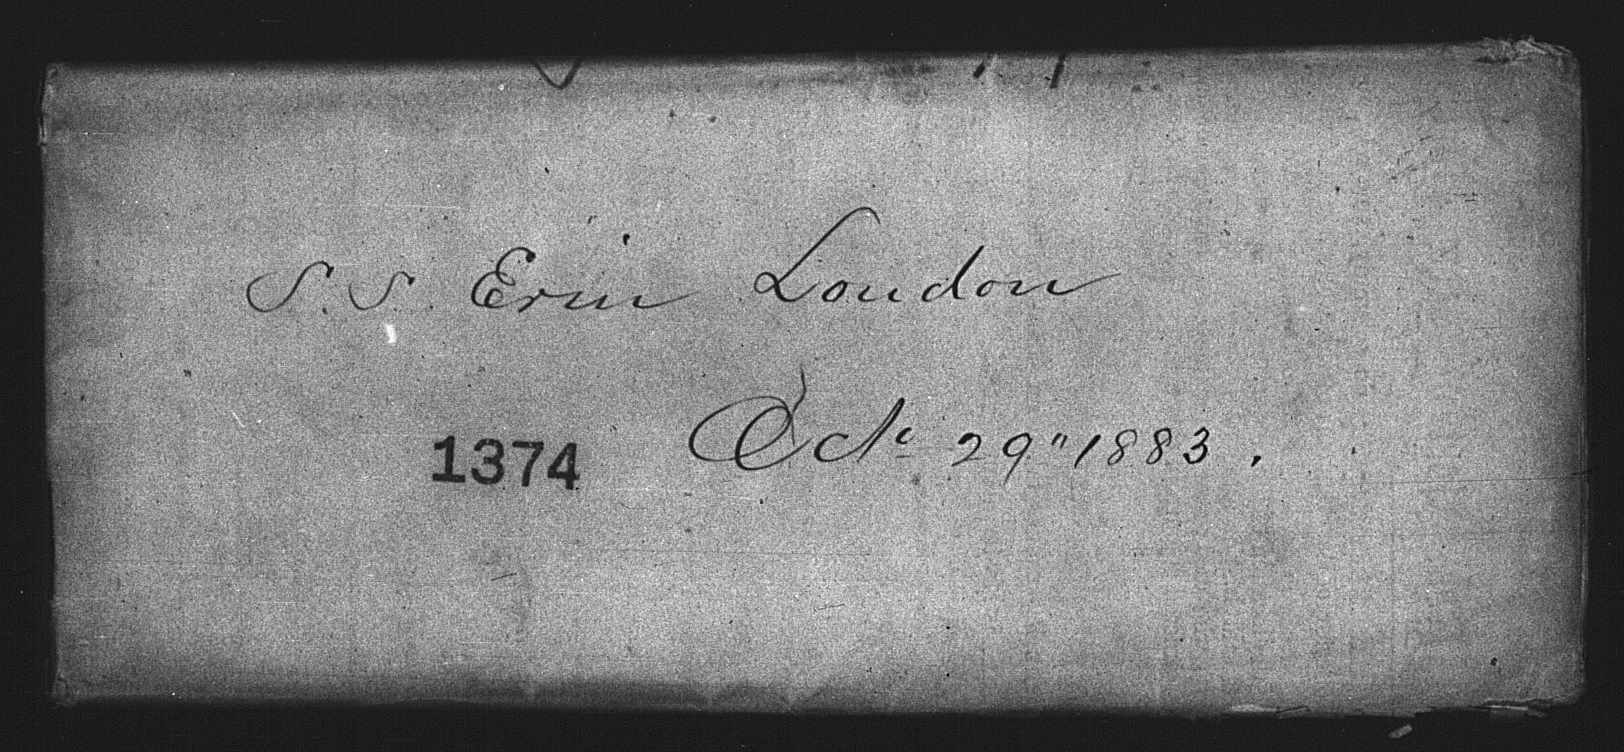 S. S. Erin London
1374 Oct. 29" 1883.